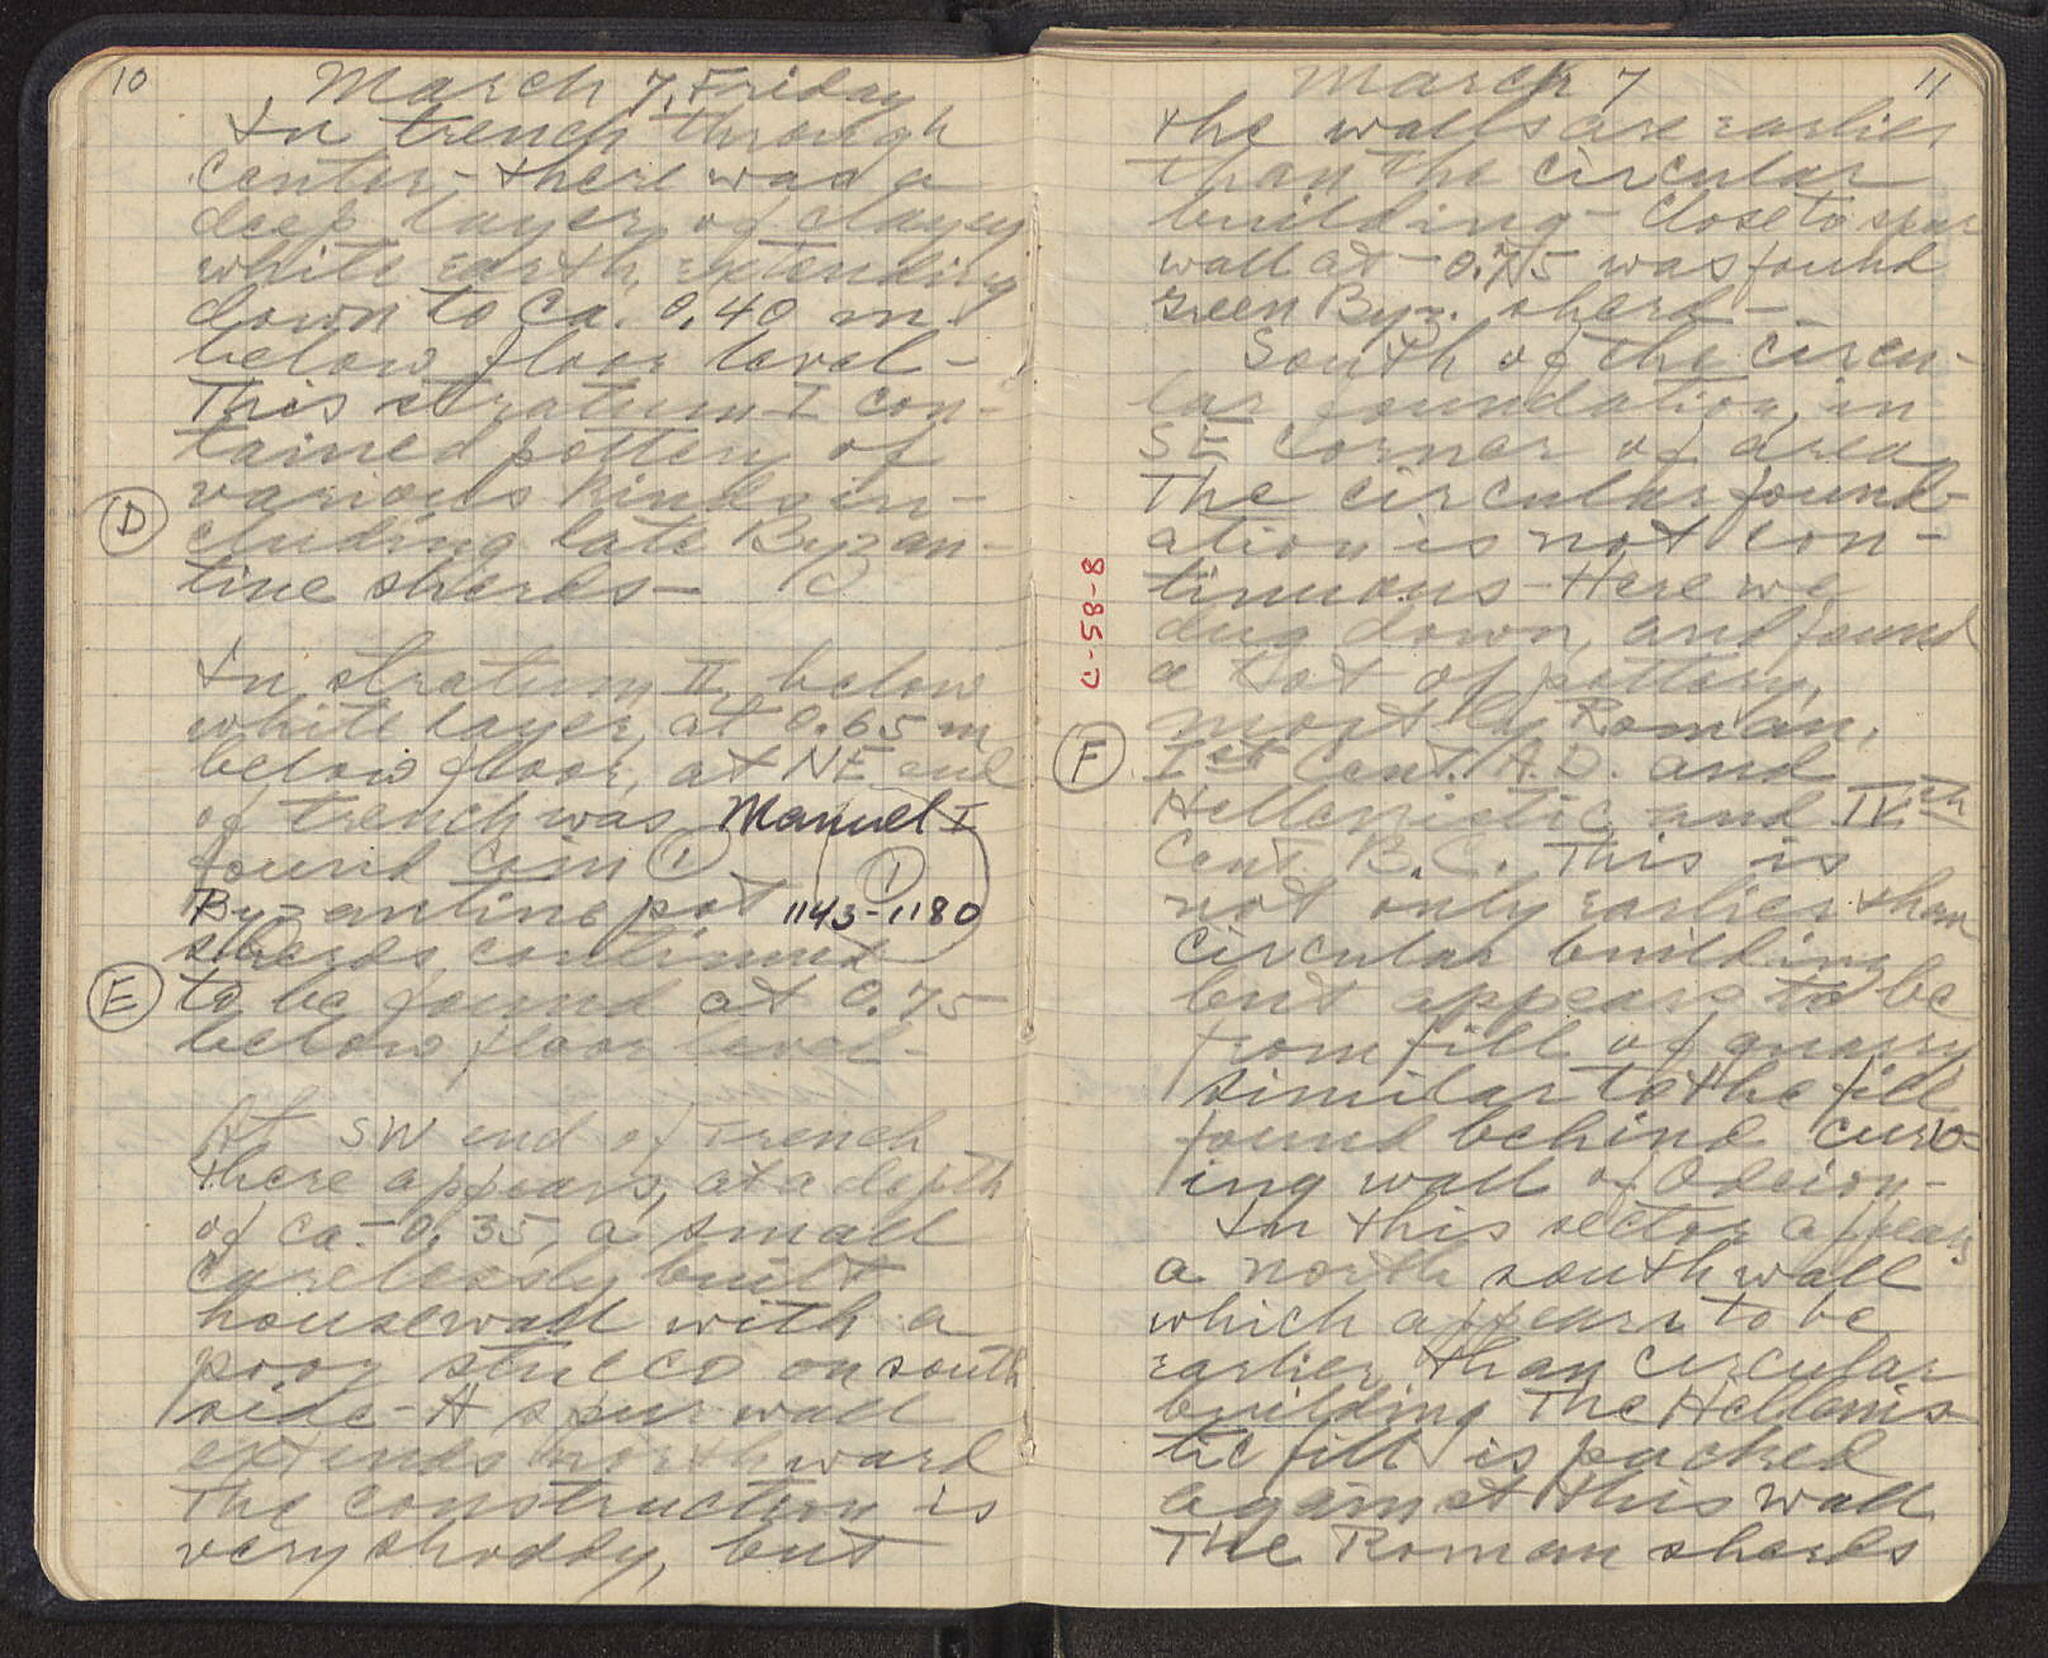 10
March 7, Friday
In trench through
center - there was a
deep layer of clayey
white earth, extending
down to Ca. 0.40 m
below floor level -
This stratum I con-
tained pottery of
various kinds in-
D
cluding late Byzan-
tine sherds -
In stratum II, below
white layer, at 0.65 m
below floor, at NE end
of trench was Manuel I
found coin 1
1
Byzantine pot 1143-1180
sherds continued
E
to be found at 0.75
below floor level -
At SW end of trench
there appears, at a depth
of ca. -0.35, a small
carelessly built
housewall with a
poor stucco on south
side - A spur wall
extends northward
The construction is
very shoddy, but
March 7
11
the walls are earlier
than the circular
building - Close to spur
wall at -0.75 was found
green Byz. sherd -
South of the circu-
lar foundation, in
SE corner of area
The circular found-
ation is not con-
tinuous - Here we
dug down, and found
a lot of pottery,
C-58-8
mostly Roman,
F
Ist Cent. A.D. and
Hellenistic and IVth
Cent. B.C. This is
not only earlier than
circular building
but appears to be
from fill of quarry
similar to the fill
found behind curv-
ing wall of Odeion -
In this sector appears
a north south wall
which appears to be
earlier than circular
building The Hellenis-
tic fill is packed
against this wall
The Roman sherds